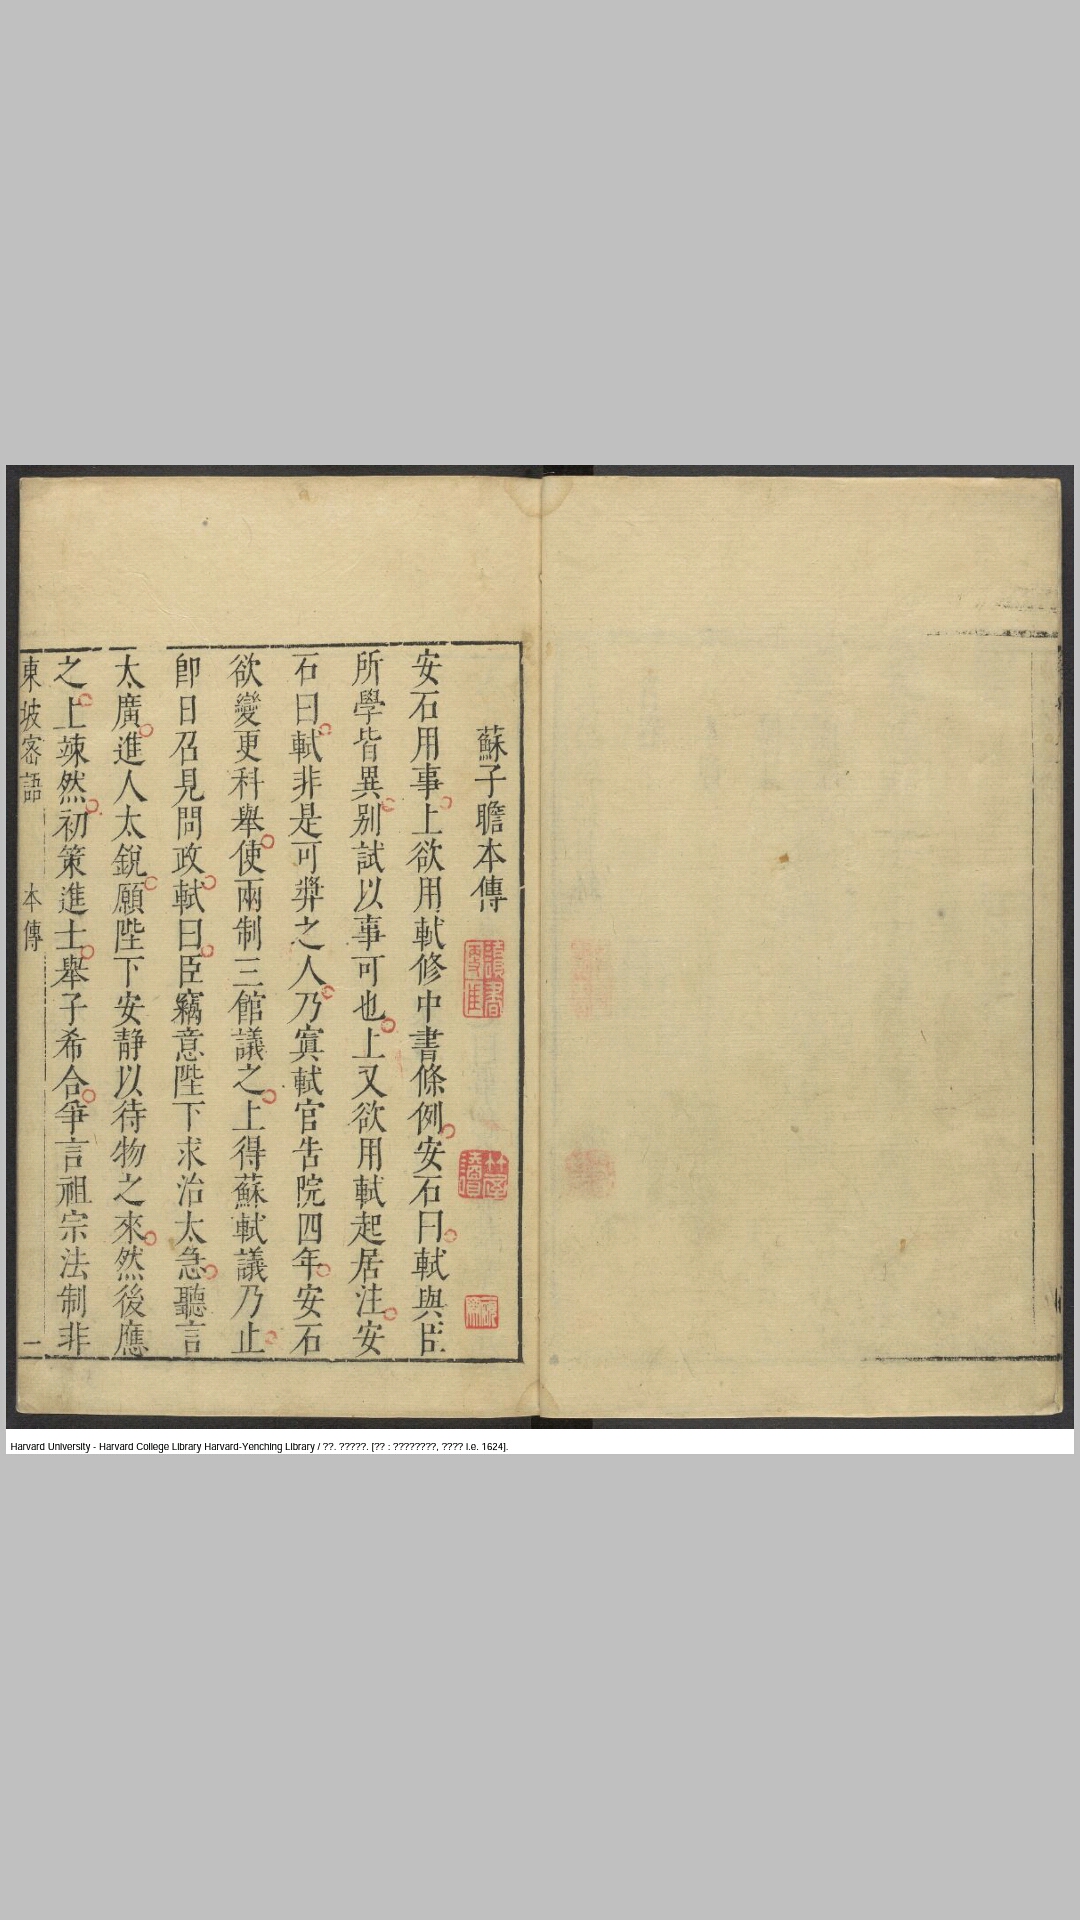 蘇子瞻本傳
安石用事上欲用軾修中書條例安石曰軾與臣
所學皆異別試以事可也上又欲用軾起居注安
石曰軾非是可奬之人乃寘軾官告院四年安石
欲變更科舉使兩制三館議之上得蘇軾議乃止
卽日召見問政軾曰臣竊意陛下求治太急聽言
太廣進人太銳願陛下安靜以待物之來然後應
之上竦然初策進士舉子希合爭言祖宗法制非
東坡密語 本傳 一
Harvard University - Harvard College Library Harvard-Yenching Library / ??. ?????. [?? : ????????, ???? i.e. 1624].